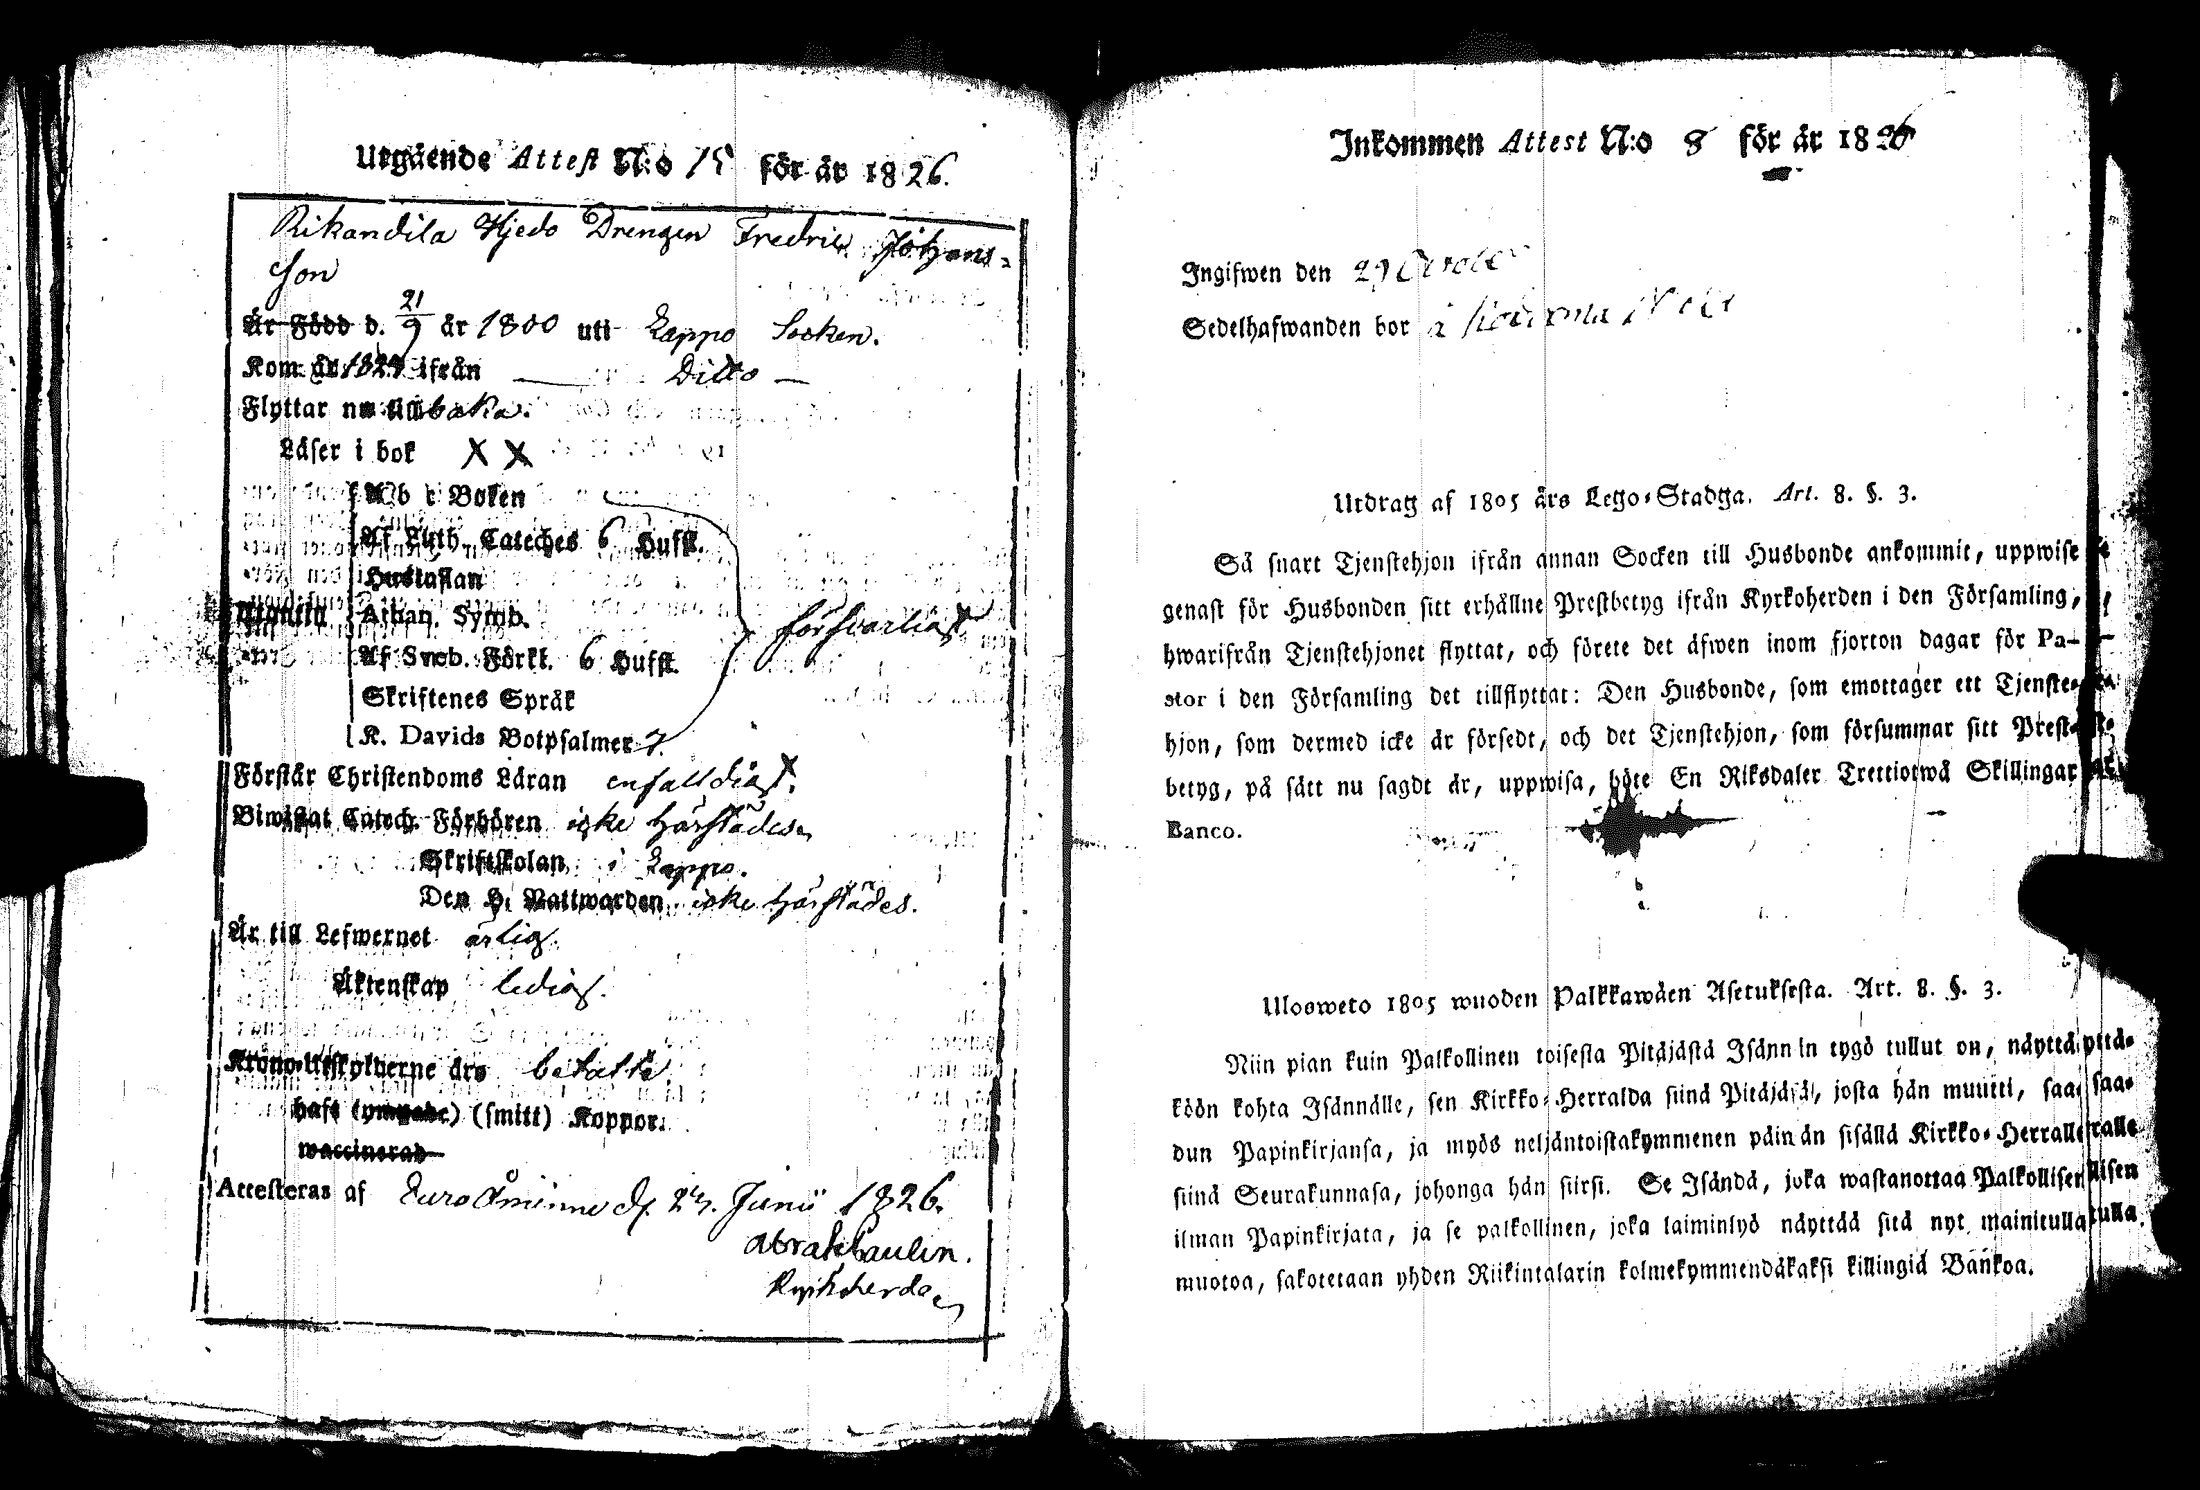 Utgående Attest N:o 15 för år 1826.
Rikandila Hjedo Drengen Fredric Johans-
son
Är Född d. 21/9 år 1800 uti Lappo Socken.
Kom år 1824 ifrån — Ditto —
Flyttar nu tillbaka.
Läser i bok X X
A b c Boken
Af Luth. Cateches 6 Hufst.
Hustaflan
Utantill Athan. Symb. försvarligt
Af Sveb. Förkl. 6 Hufst.
Skriftenes Språk
K. Davids Botpsalmer 7.
Förstår Christendoms Läran enfalldigt.
Biwistat Catech. Förhören icke härstädes.
Skriftskolan i Lappo.
Den H. Nattwarden icke härstädes.
Är till Lefwernet ärlig.
Äktenskap ledig.
Krono-Utskylderne äro betalte
haft (ympade) (smitt) Koppor.
waccinerad
Attesteras af Euro Åminne d. 24. Junii 1826.
Abrah Paulin.
Kyrkoherde
Inkommen Attest N:o 8 för år 1826
Ingifwen den 29 October
Sedelhafwanden bor i
Utdrag af 1805 års Lego-Stadga. Art. 8. §. 3.
Så snart Tjenstehjon ifrån annan Socken till Husbonde ankommit, uppwise
genast för Husbonden sitt erhållne Prestbetyg ifrån Kyrkoherden i den Församling,
hwarifrån Tjenstehjonet flyttat, och förete det äfwen inom fjorton dagar för Pa-
stor i den Församling det tillflyttat: Den Husbonde, som emottager ett Tjenste-
hjon, som dermed icke är försedt, och det Tjenstehjon, som försummar sitt Prest-
betyg, på sätt nu sagdt är, uppwisa, böte En Riksdaler Trettiotwå Skillingar
Banco.
Ulosweto 1805 wuoden Palkkawäen Asetuksesta. Art. 8. §. 3.
Niin pian kuin Palkollinen toisesta Pitäjästä Isännän tygö tullut on, näyttä-
köön kohta Isännälle, sen Kirkko-Herralda siinä Pitäjäsä, josta hän muutti, saa-
dun Papinkirjansa, ja myös neljäntoistakymmenen päiwän sisällä Kirkko-Herralle
siinä Seurakunnasa, johonga hän siirsi. Se Isändä, joka wastanottaa Palkollisen
ilman Papinkirjata, ja se palkollinen, joka laiminlyö näyttää sitä nyt mainitulla
muotoa, sakotetaan yhden Riikintalarin kolmekymmendäkaksi killingiä Bankoa.